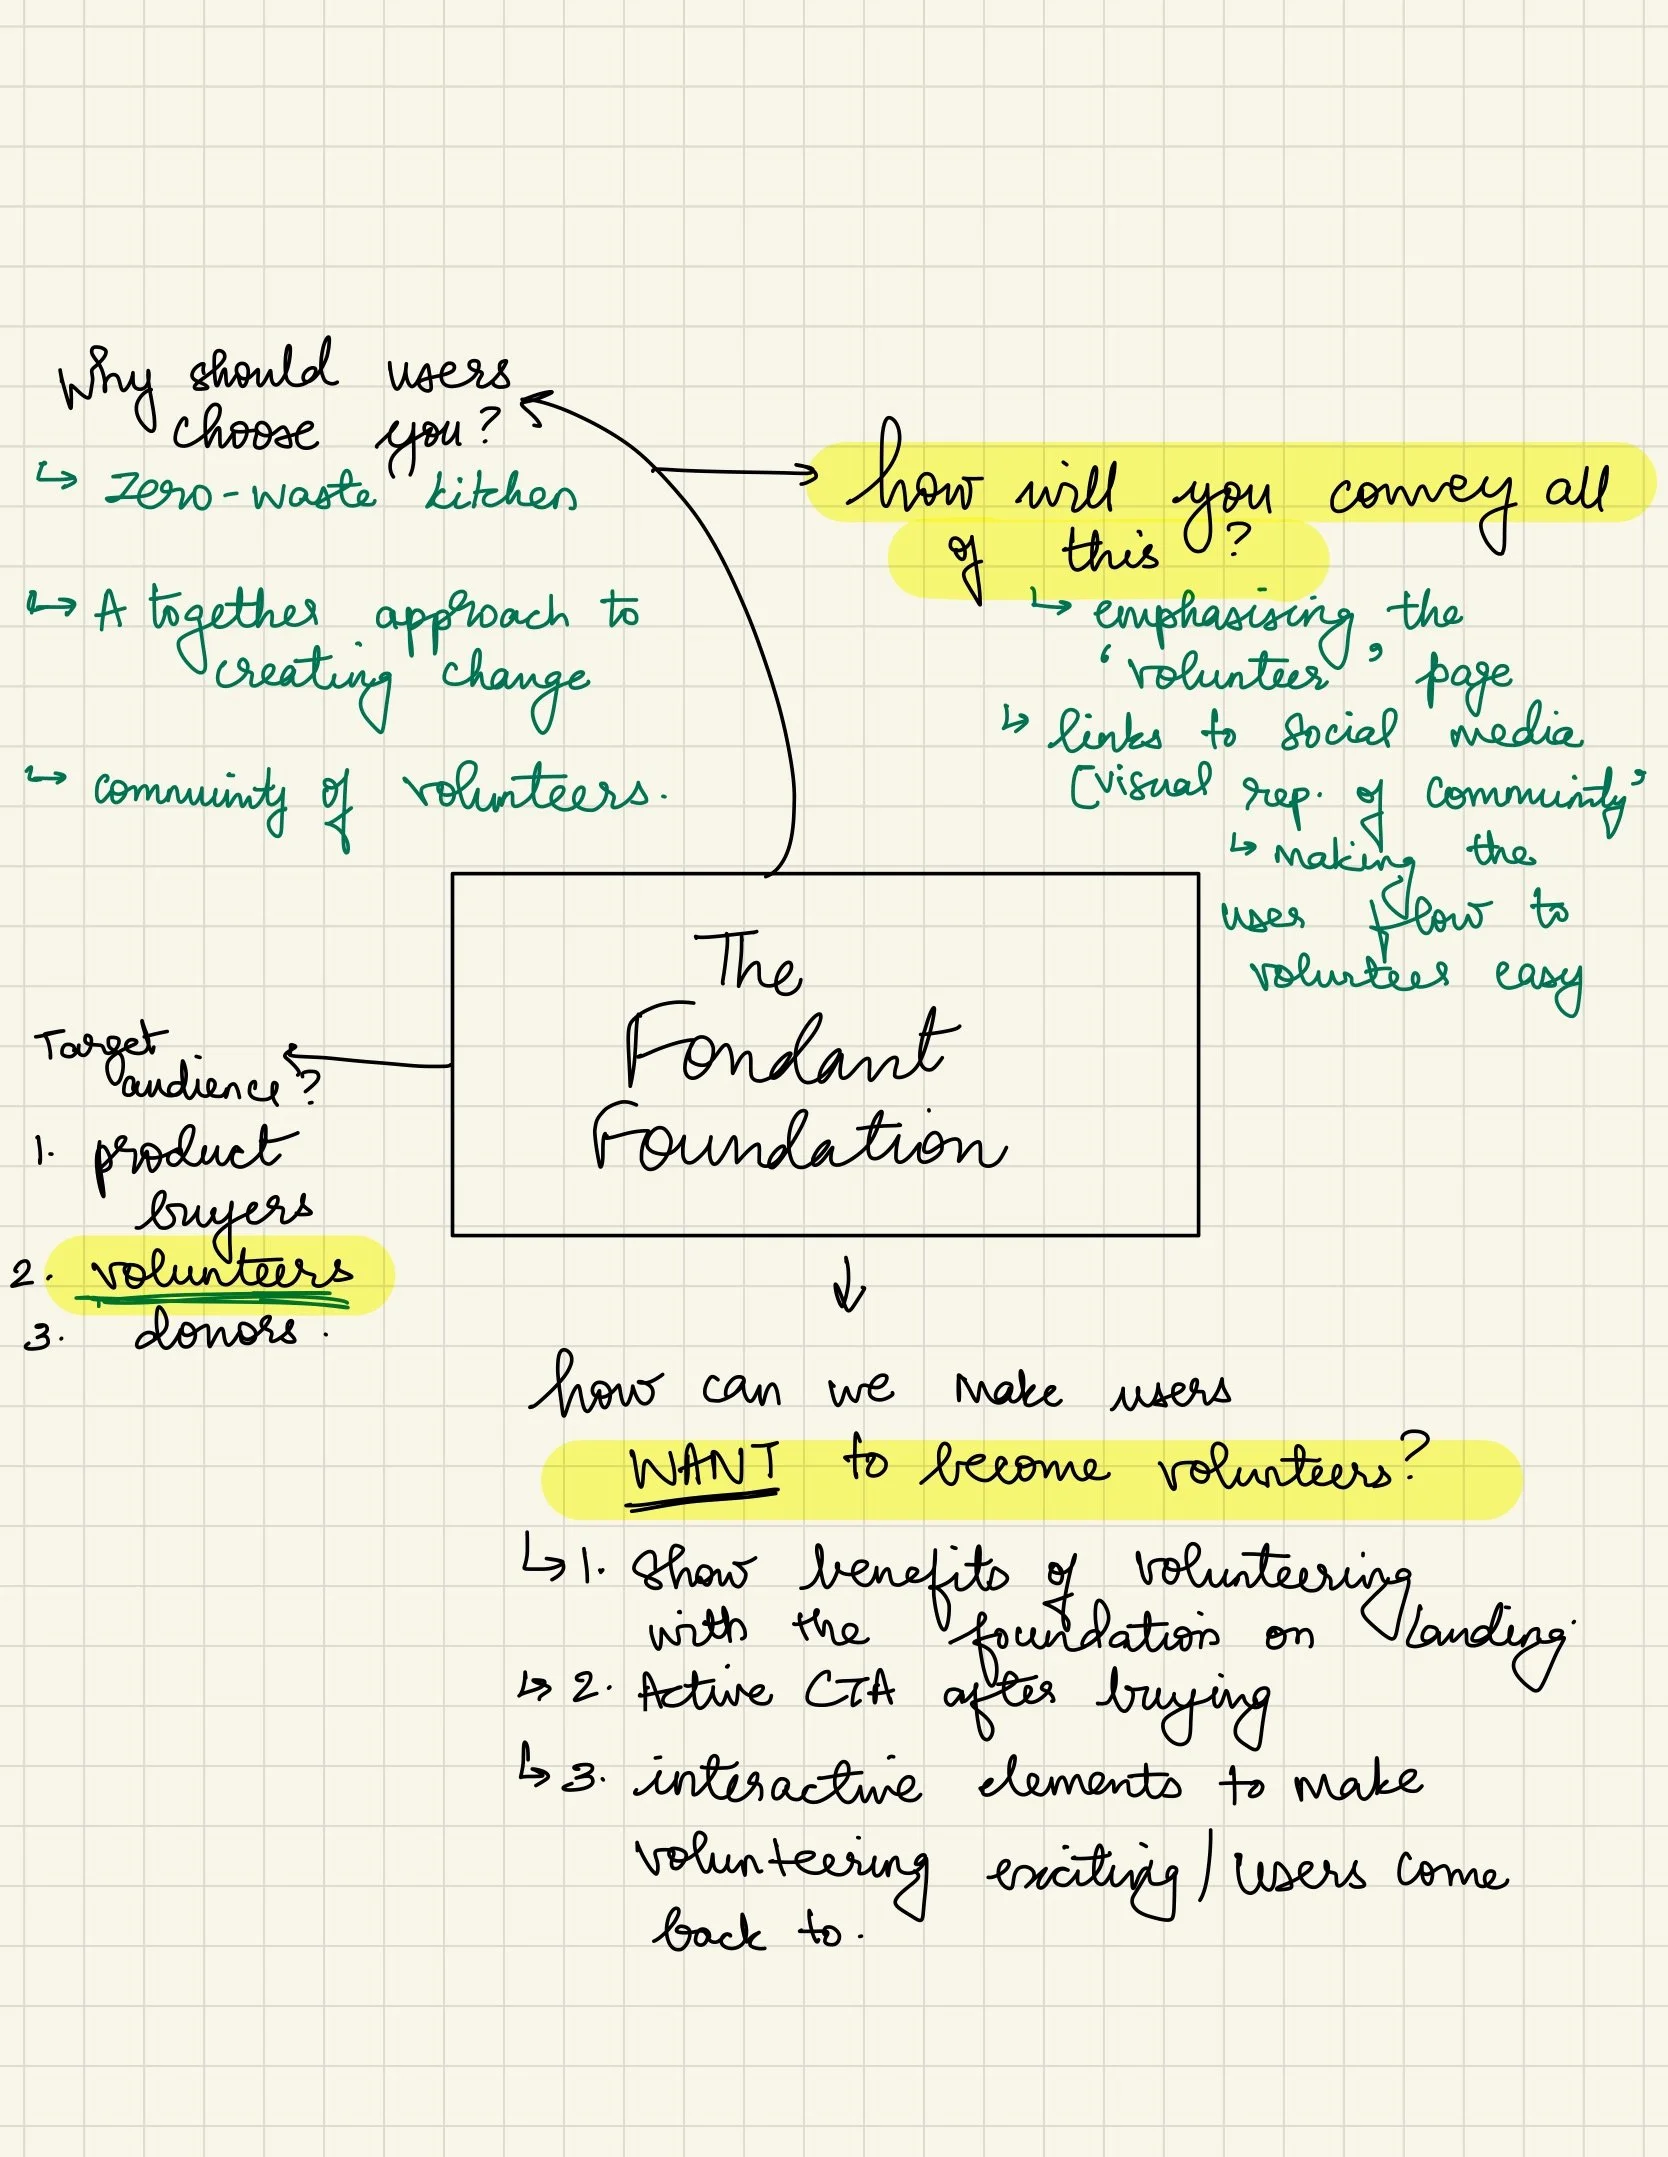 Why should users
choose you?
↳ zero-waste kitchen
↳ A together approach to
creating change
↳ community of volunteers.
how will you convey all
of this?
↳ emphasising the
'volunteer' page
↳ links to social media
(visual rep. of community)
↳ making the
user flow to
volunteer easy
The
Fondant
Foundation
Target
audience?
1. product
buyers
2. volunteers
3. donors.
how can we make users
WANT to become volunteers?
↳ 1. Show benefits of volunteering
with the foundation on landing.
↳ 2. Active CTA after buying
↳ 3. interactive elements to make
volunteering exciting/users come
back to.